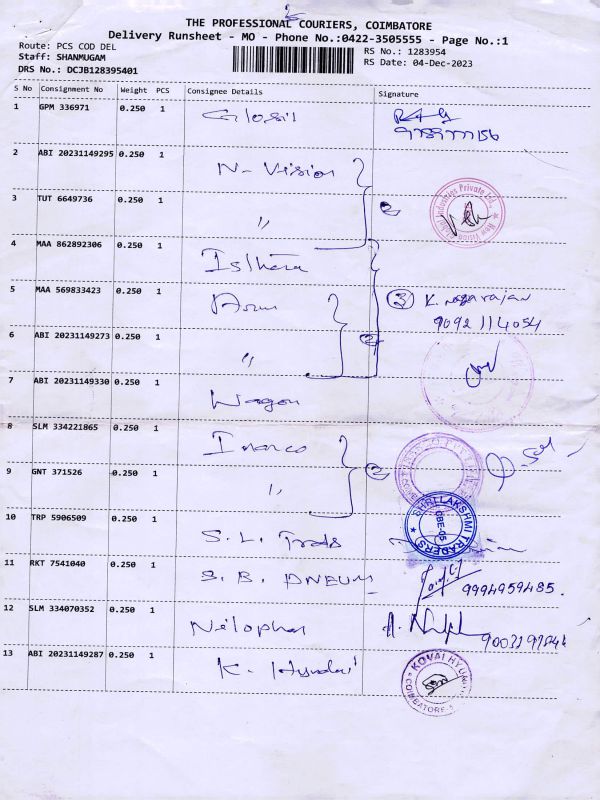 THE PROFESSIONAL COURIERS, COIMBATORE
Delivery Runsheet - MO - Phone No.:0422-3505555 - Page No.:1
Route: PCS COD DEL
Staff: SHANMUGAM
DRS No.: DCJB128395401
RS No.: 1283954
RS Date: 04-Dec-2023
S No Consignment No Weight PCS Consignee Details Signature
1 GPM 336971 0.250 1 Glosil
2 ABI 20231149295 0.250 1 N-Vision
3 TUT 6649736 0.250 1 "
4 MAA 862892306 0.250 1
5 MAA 569833423 0.250 1 Arun 3 K. Nagarajan
9092114054
6 ABI 20231149273 0.250 1 "
7 ABI 20231149330 0.250 1 Wagon
8 SLM 334221865 0.250 1 Imarco
9 GNT 371526 0.250 1 "
10 TRP 5906509 0.250 1 S. L. Trads
SHRI LAKSHMI TRADERS
CBE-05
11 RKT 7541040 0.250 1 S. B. PNEUM 9994959485.
12 SLM 334070352 0.250 1 Nilopher
13 ABI 20231149287 0.250 1 K. Hyundai
KOVAI HYUN
COIMBATORE